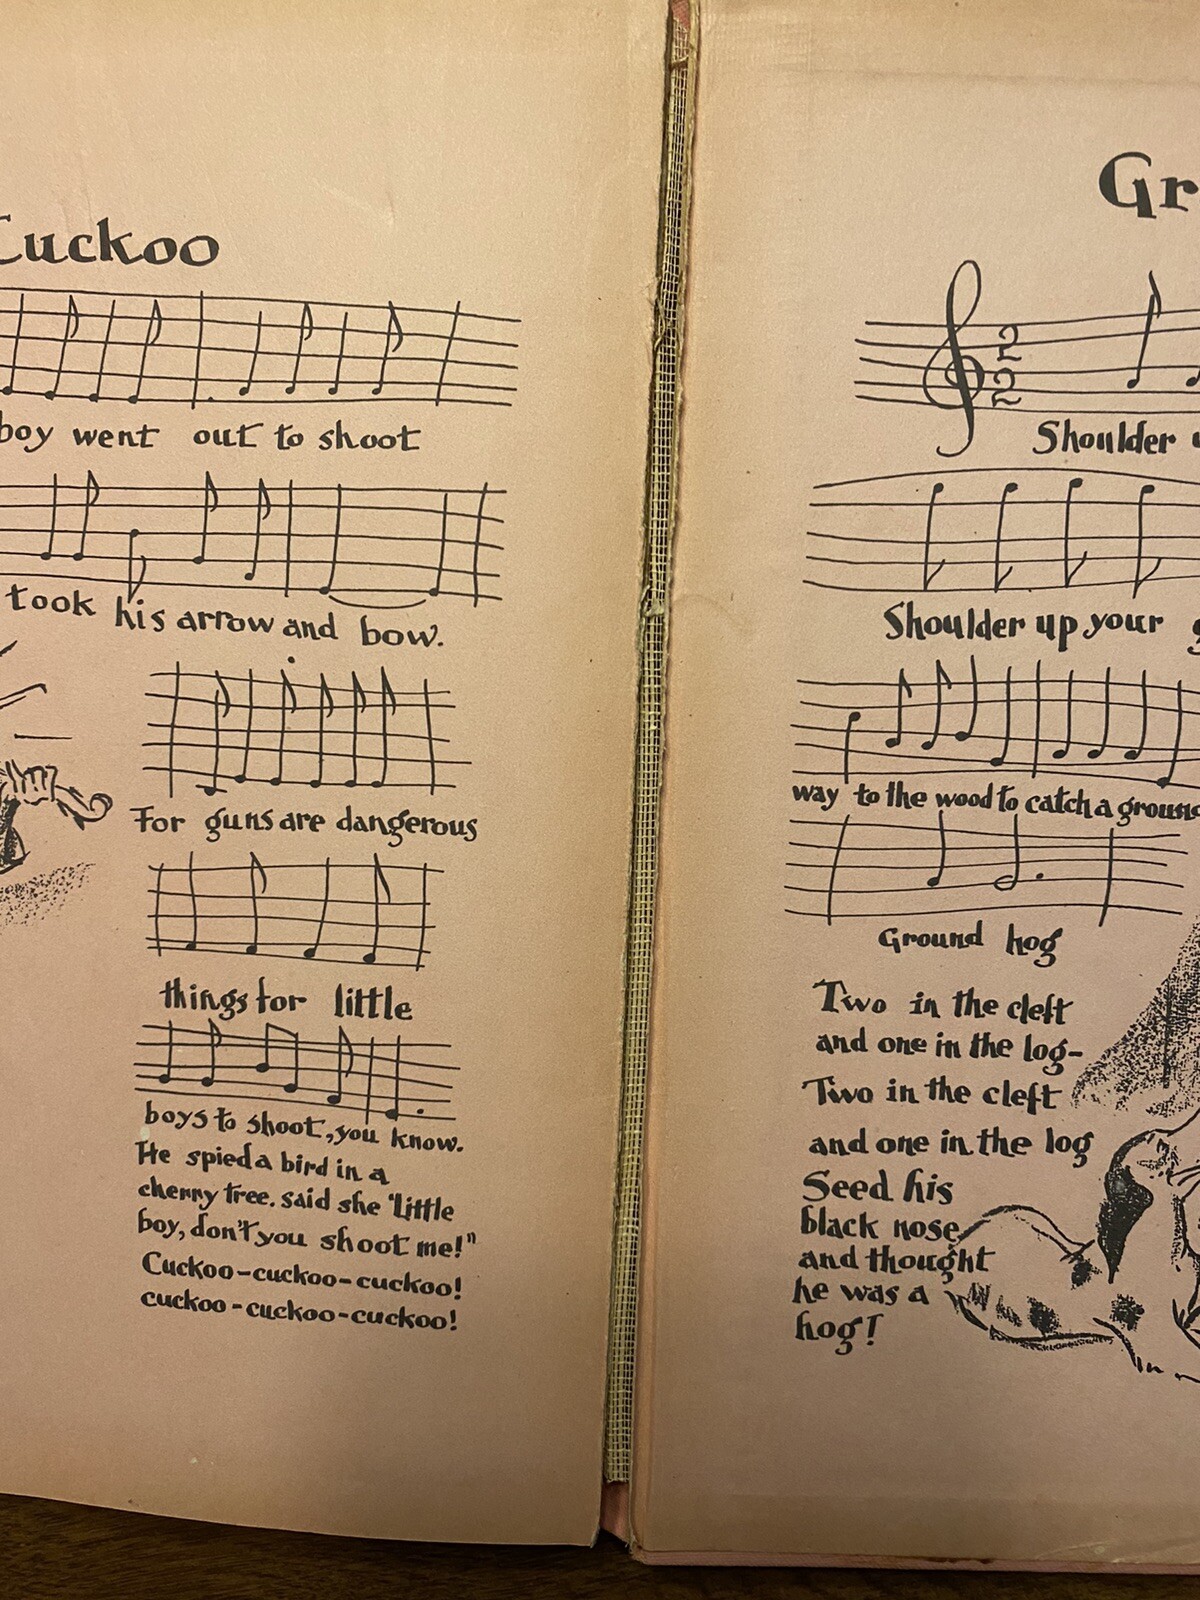 Cuckoo
boy went out to shoot
took his arrow and bow.
For guns are dangerous
things for little
boys to shoot, you know.
He spied a bird in a
cherry tree. said she "Little
boy, don't you shoot me!"
Cuckoo-cuckoo-cuckoo!
cuckoo-cuckoo-cuckoo!
Gr
2
2
Shoulder u
Shoulder up your g
way to the wood to catch a ground
Ground hog
Two in the cleft
and one in the log-
Two in the cleft
and one in the log
Seed his
black nose
and thought
he was a
hog!